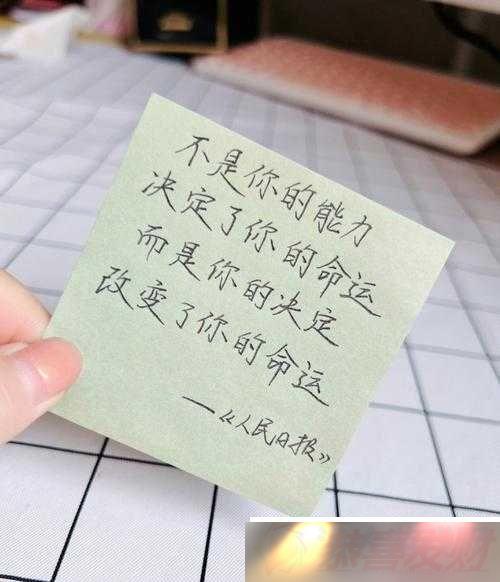 不是你的能力
决定了你的命运
而是你的决定
改变了你的命运
—《人民日报》
恭喜发财